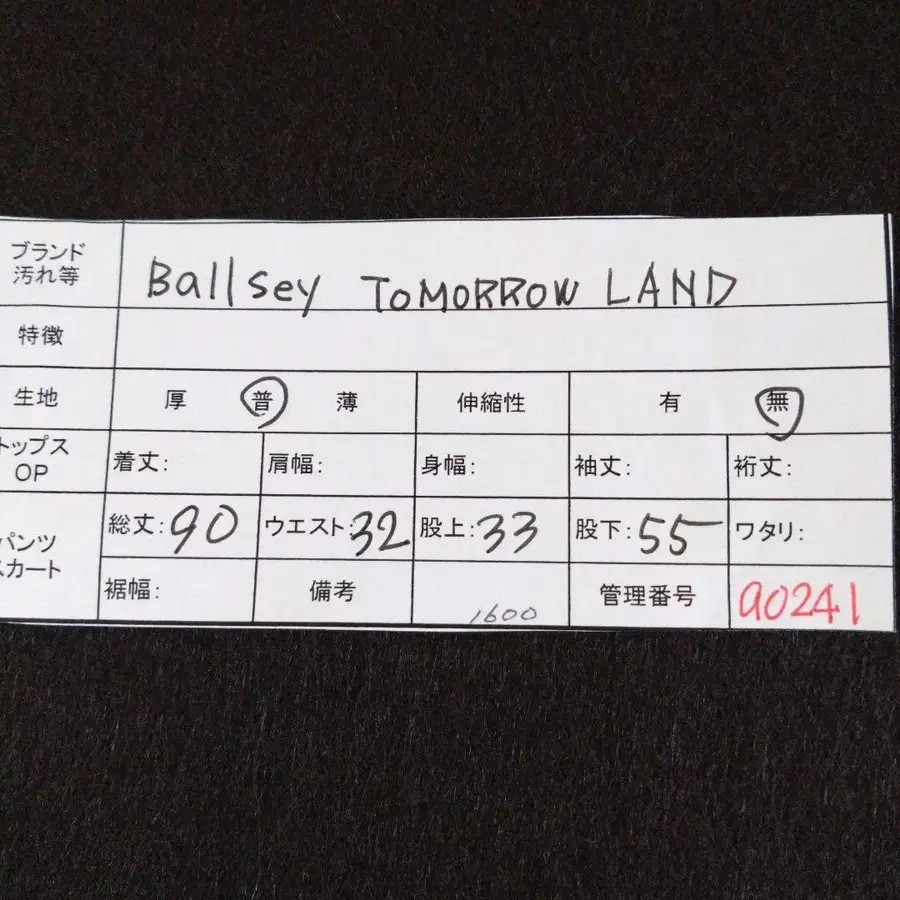 ブランド
汚れ等
Ballsey TOMORROW LAND
特徴
生地 厚 普 薄 伸縮性 有 無
トップス
OP
着丈: 肩幅: 身幅: 袖丈: 裄丈:
パンツ
スカート
総丈:90 ウエスト:32 股上:33 股下:55 ワタリ:
裾幅: 備考 1600 管理番号 a0241